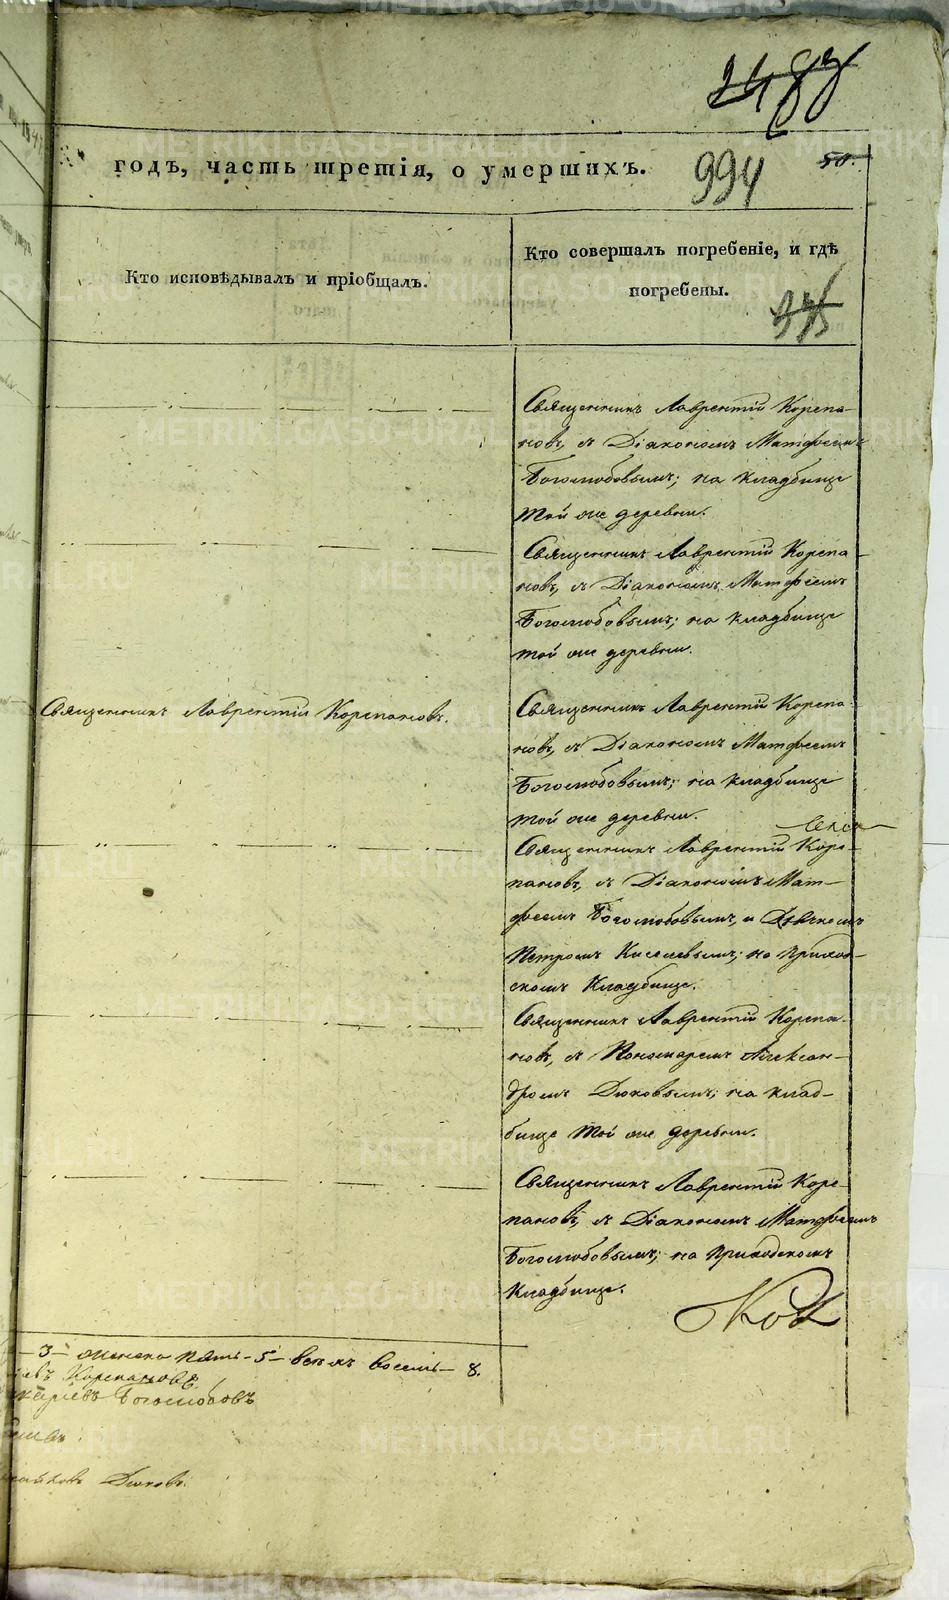 годъ, часть третія, о умершихъ.
994
50.
Кто исповѣдывалъ и пріобщалъ.
Кто совершалъ погребеніе, и гдѣ
погребены.
Священникъ Лаврентій Корепа-
новъ, съ Діакономъ Матфеемъ
Боголюбовымъ; на кладбище
той же деревни.
Священникъ Лаврентій Корепа-
новъ, съ Діакономъ Матфеемъ
Боголюбовымъ; на кладбище
той же деревни.
Священникъ Лаврентій Корепановъ.
Священникъ Лаврентій Корепа-
новъ, съ Діакономъ Матфеемъ
Боголюбовымъ; на кладбище
той же деревни.
Священникъ Лаврентій Коре-
пановъ, съ Діакономъ Мат-
феемъ Боголюбовымъ, и Дьячкомъ
Петромъ Киселевымъ; на Приход-
скомъ Кладбище.
Священникъ Лаврентій Корепа-
новъ, съ Пономаремъ Алексан-
дромъ Дюковымъ; на клад-
бище той же деревни.
Священникъ Лаврентій Коре-
пановъ, съ Діакономъ Матфеемъ
Боголюбовымъ; на Приходскомъ
Кладбище.
– 3 – женска пять – 5 – всѣхъ восемь – 8.
Корепановъ
Боголюбовъ
Дюковъ.
METRIKI.GASO-URAL.RU